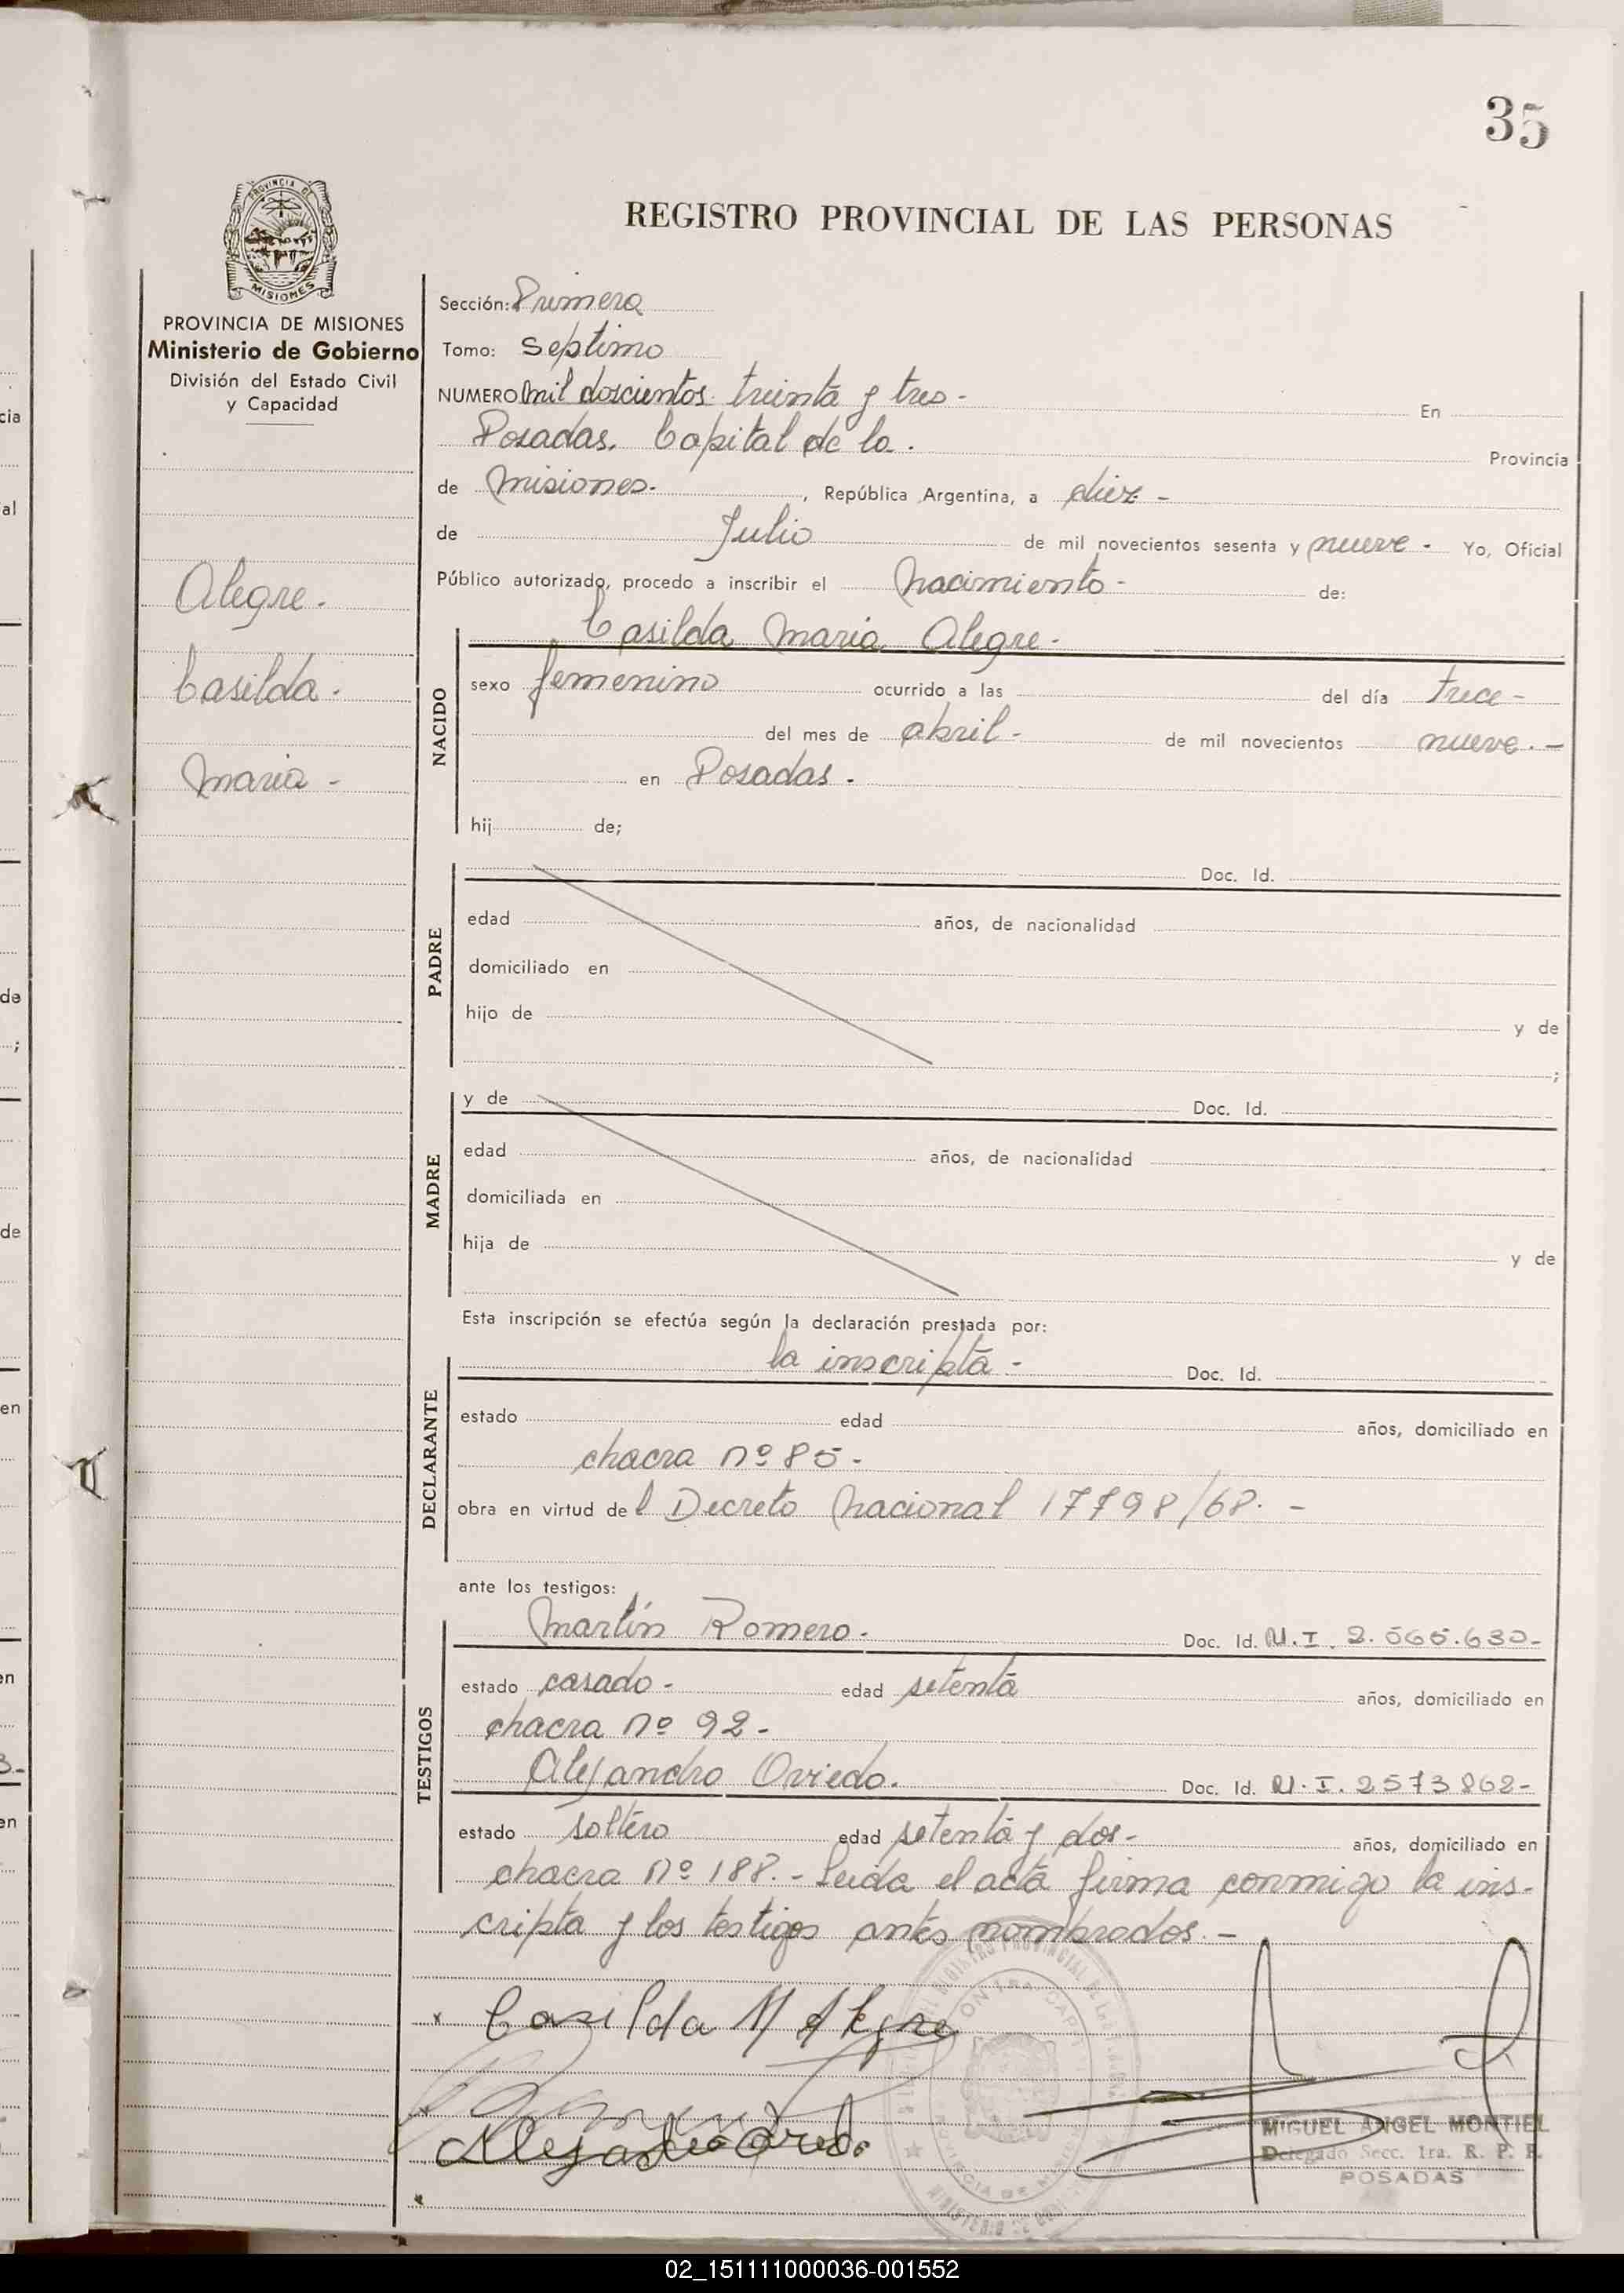 35
REGISTRO PROVINCIAL DE LAS PERSONAS
PROVINCIA DE MISIONES
Ministerio de Gobierno
División del Estado Civil
y Capacidad
Alegre.
Casilda.
Maria -
Sección: Primera
Tomo: Septimo
NUMERO mil doscientos treinta y tres - En
Posadas. Capital de la. Provincia
de Misiones. , República Argentina, a diez -
de Julio de mil novecientos sesenta y nueve - Yo, Oficial
Público autorizado, procedo a inscribir el nacimiento - de:
Casilda Maria Alegre.
NACIDO
sexo femenino ocurrido a las del día trece -
del mes de abril - de mil novecientos nueve. -
en Posadas.
hij de;
PADRE
Doc. Id.
edad años, de nacionalidad
domiciliado en
hijo de y de
;
MADRE
y de Doc. Id.
edad años, de nacionalidad
domiciliada en
hija de y de
Esta inscripción se efectúa según la declaración prestada por:
DECLARANTE
la inscripta - Doc. Id.
estado edad años, domiciliado en
chacra nº 85 -
obra en virtud del Decreto Nacional 17798/68. -
ante los testigos:
TESTIGOS
Martín Romero. Doc. Id. M.I. 2.565.630-
estado casado - edad setenta años, domiciliado en
chacra nº 92 -
Alejandro Oviedo. Doc. Id. M.I. 2573862-
estado soltero edad setenta y dos - años, domiciliado en
chacra nº 188. - Leida el acta firma conmigo la ins-
cripta y los testigos antes nombrados. -
x Casilda M Alegre
MIGUEL ANGEL MONTIEL
Delegado Secc. 1ra. R. P. P.
POSADAS
02_151111000036-001552